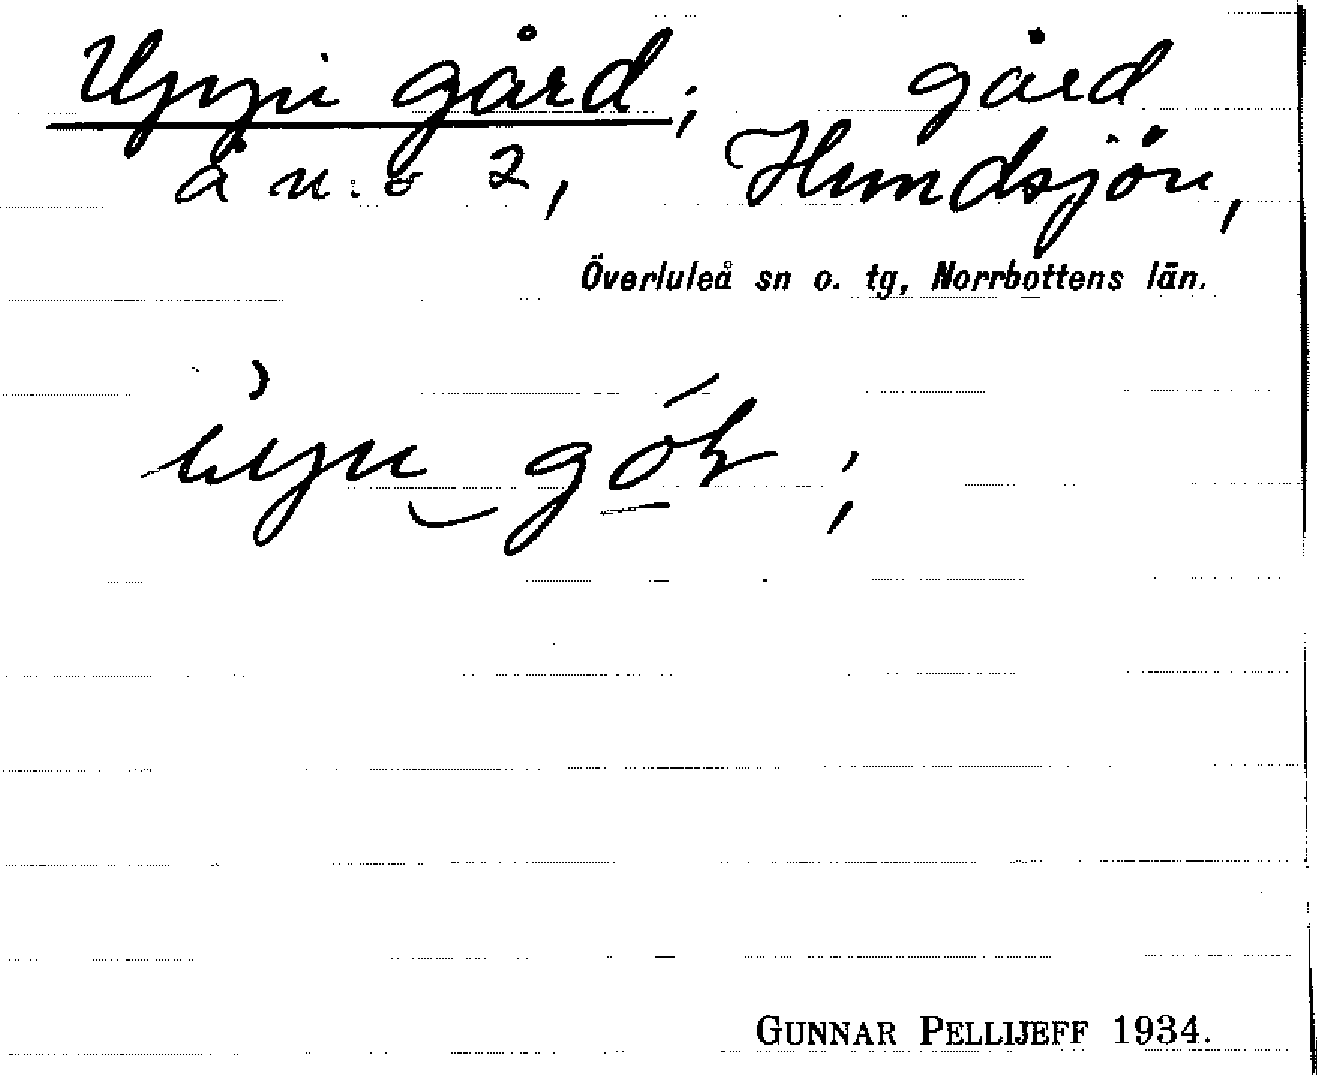 Uppi gård; gård
å n:o 2, Hundsjön,
Överluleå sn o. tg, Norrbottens län.
GUNNAR PELLIJEFF 1934.